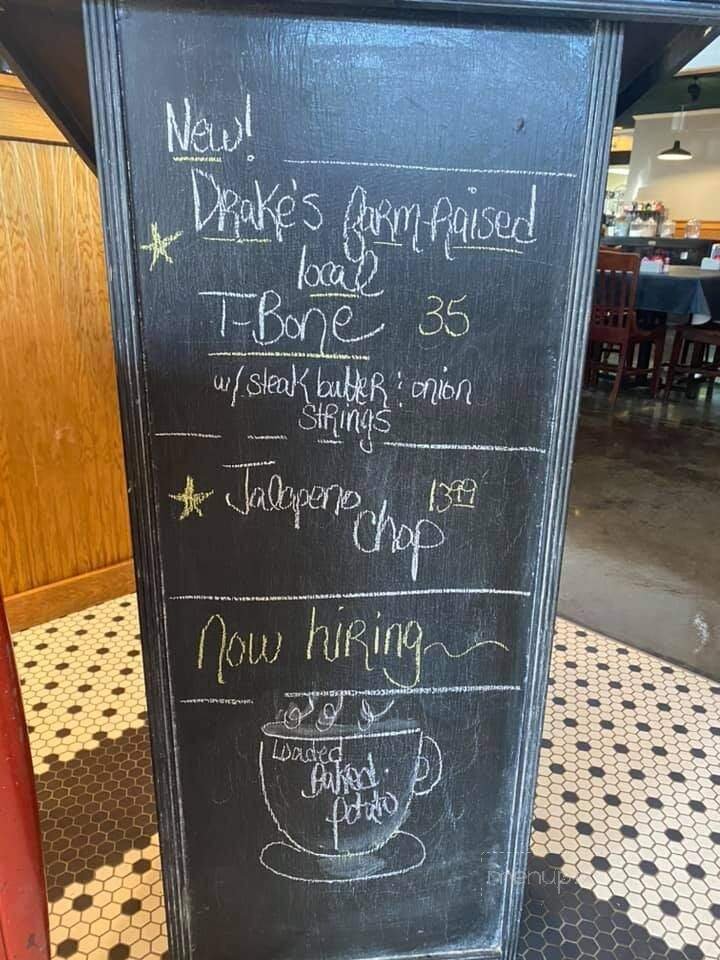 New!
Drake's Farm-Raised
local
T-Bone 35
w/ steak butter & onion
strings
Jalapeno 13.99
Chop
Now hiring
Loaded
Baked
Potato
menupix